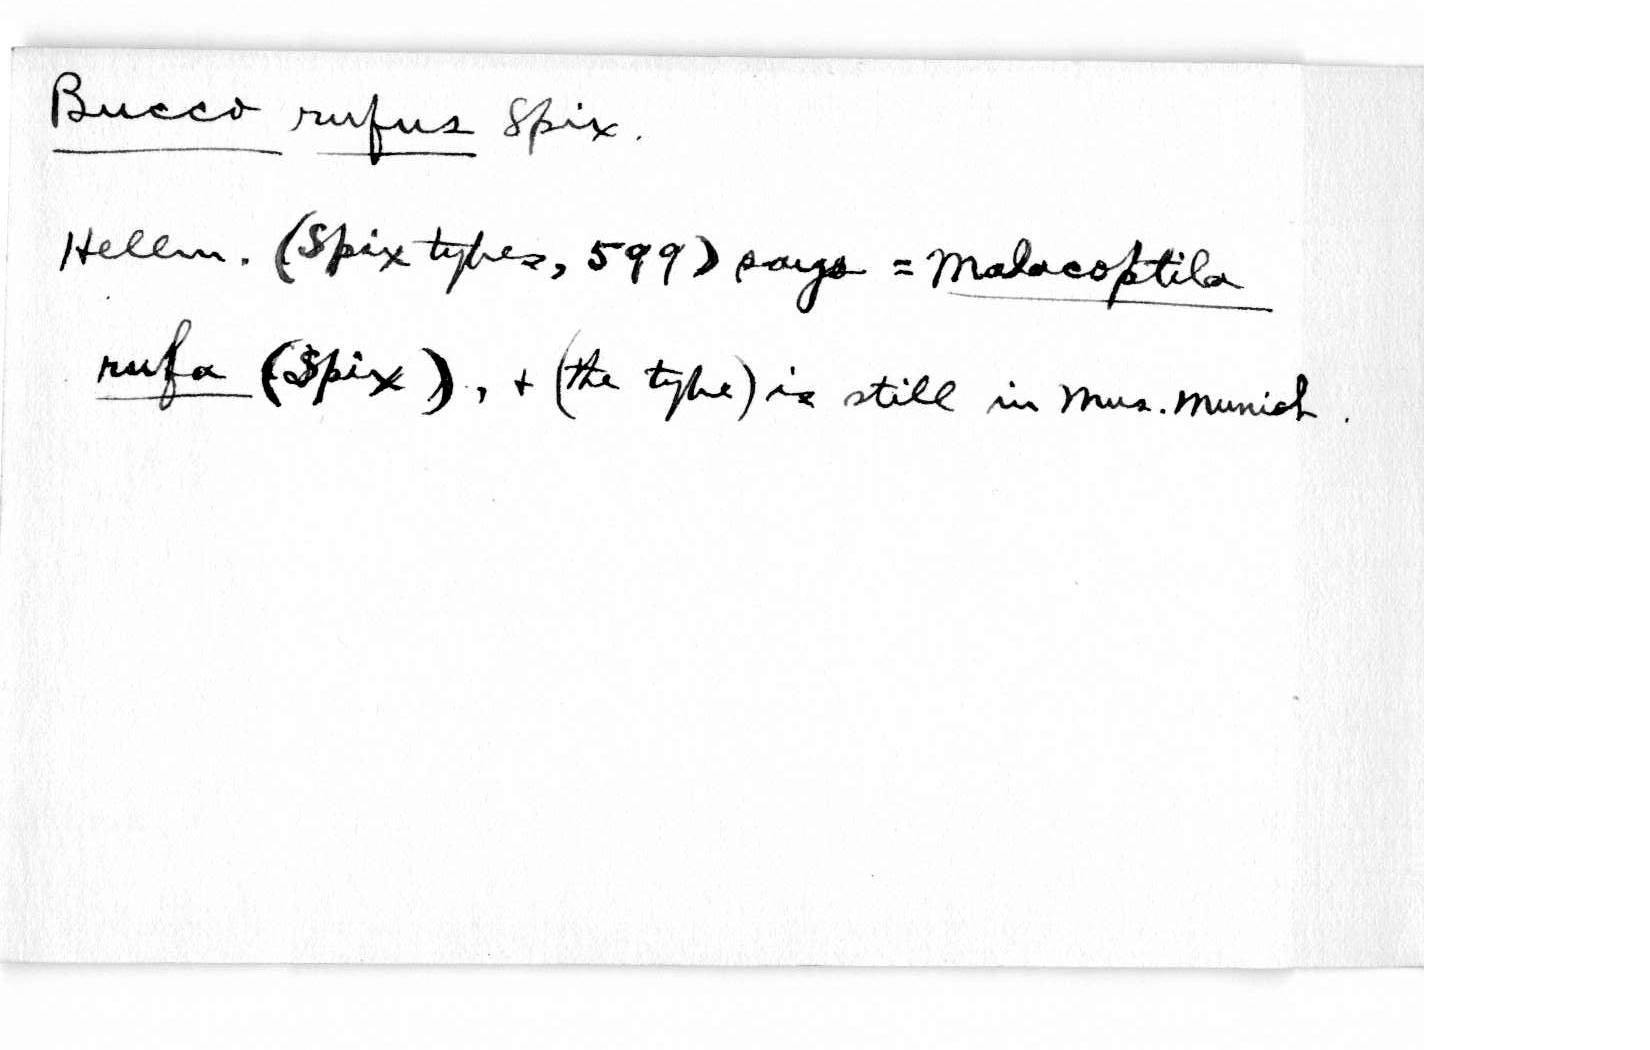 Bucco rufus Spix.
Hellm. (Spix types, 599) says = Malacoptila
rufa (Spix), + (the type) is still in Mus. Munich.